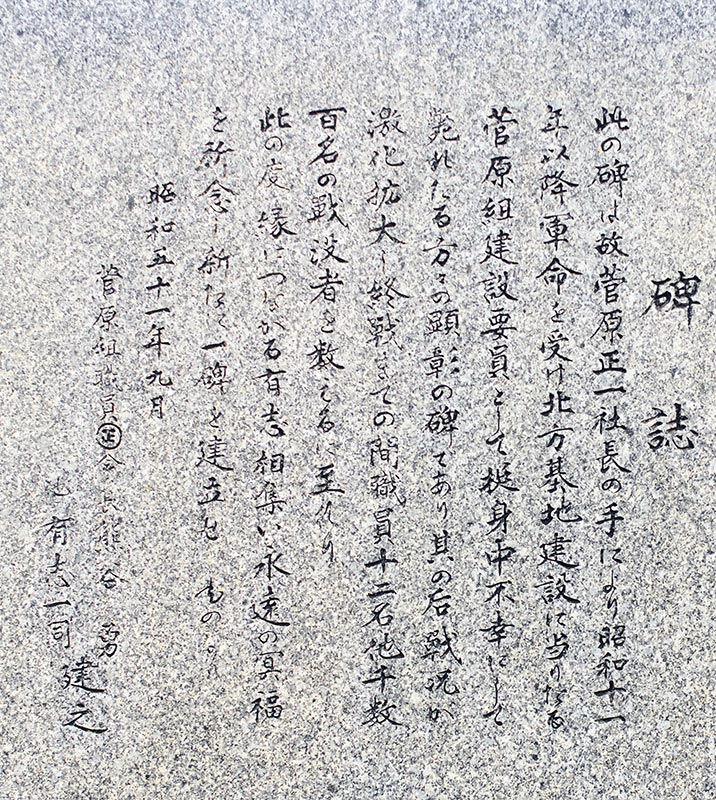 碑誌
此の碑は故菅原正一社長の手により昭和十一
年以降軍命を受け北方基地建設に当りたる
菅原組建設要員として挺身中不幸にして
斃れたる方々の顕彰の碑であり其の后戦況が
激化拡大し終戦までの間職員十二名他千数
百名の戦没者を数えるに至れり
此の度縁につながる有志相集い永遠の冥福
を祈念し新たに一碑を建立せ ものなり
昭和五十一年九月
菅原組職員㊣会会長熊谷勇
他有志一同
建之